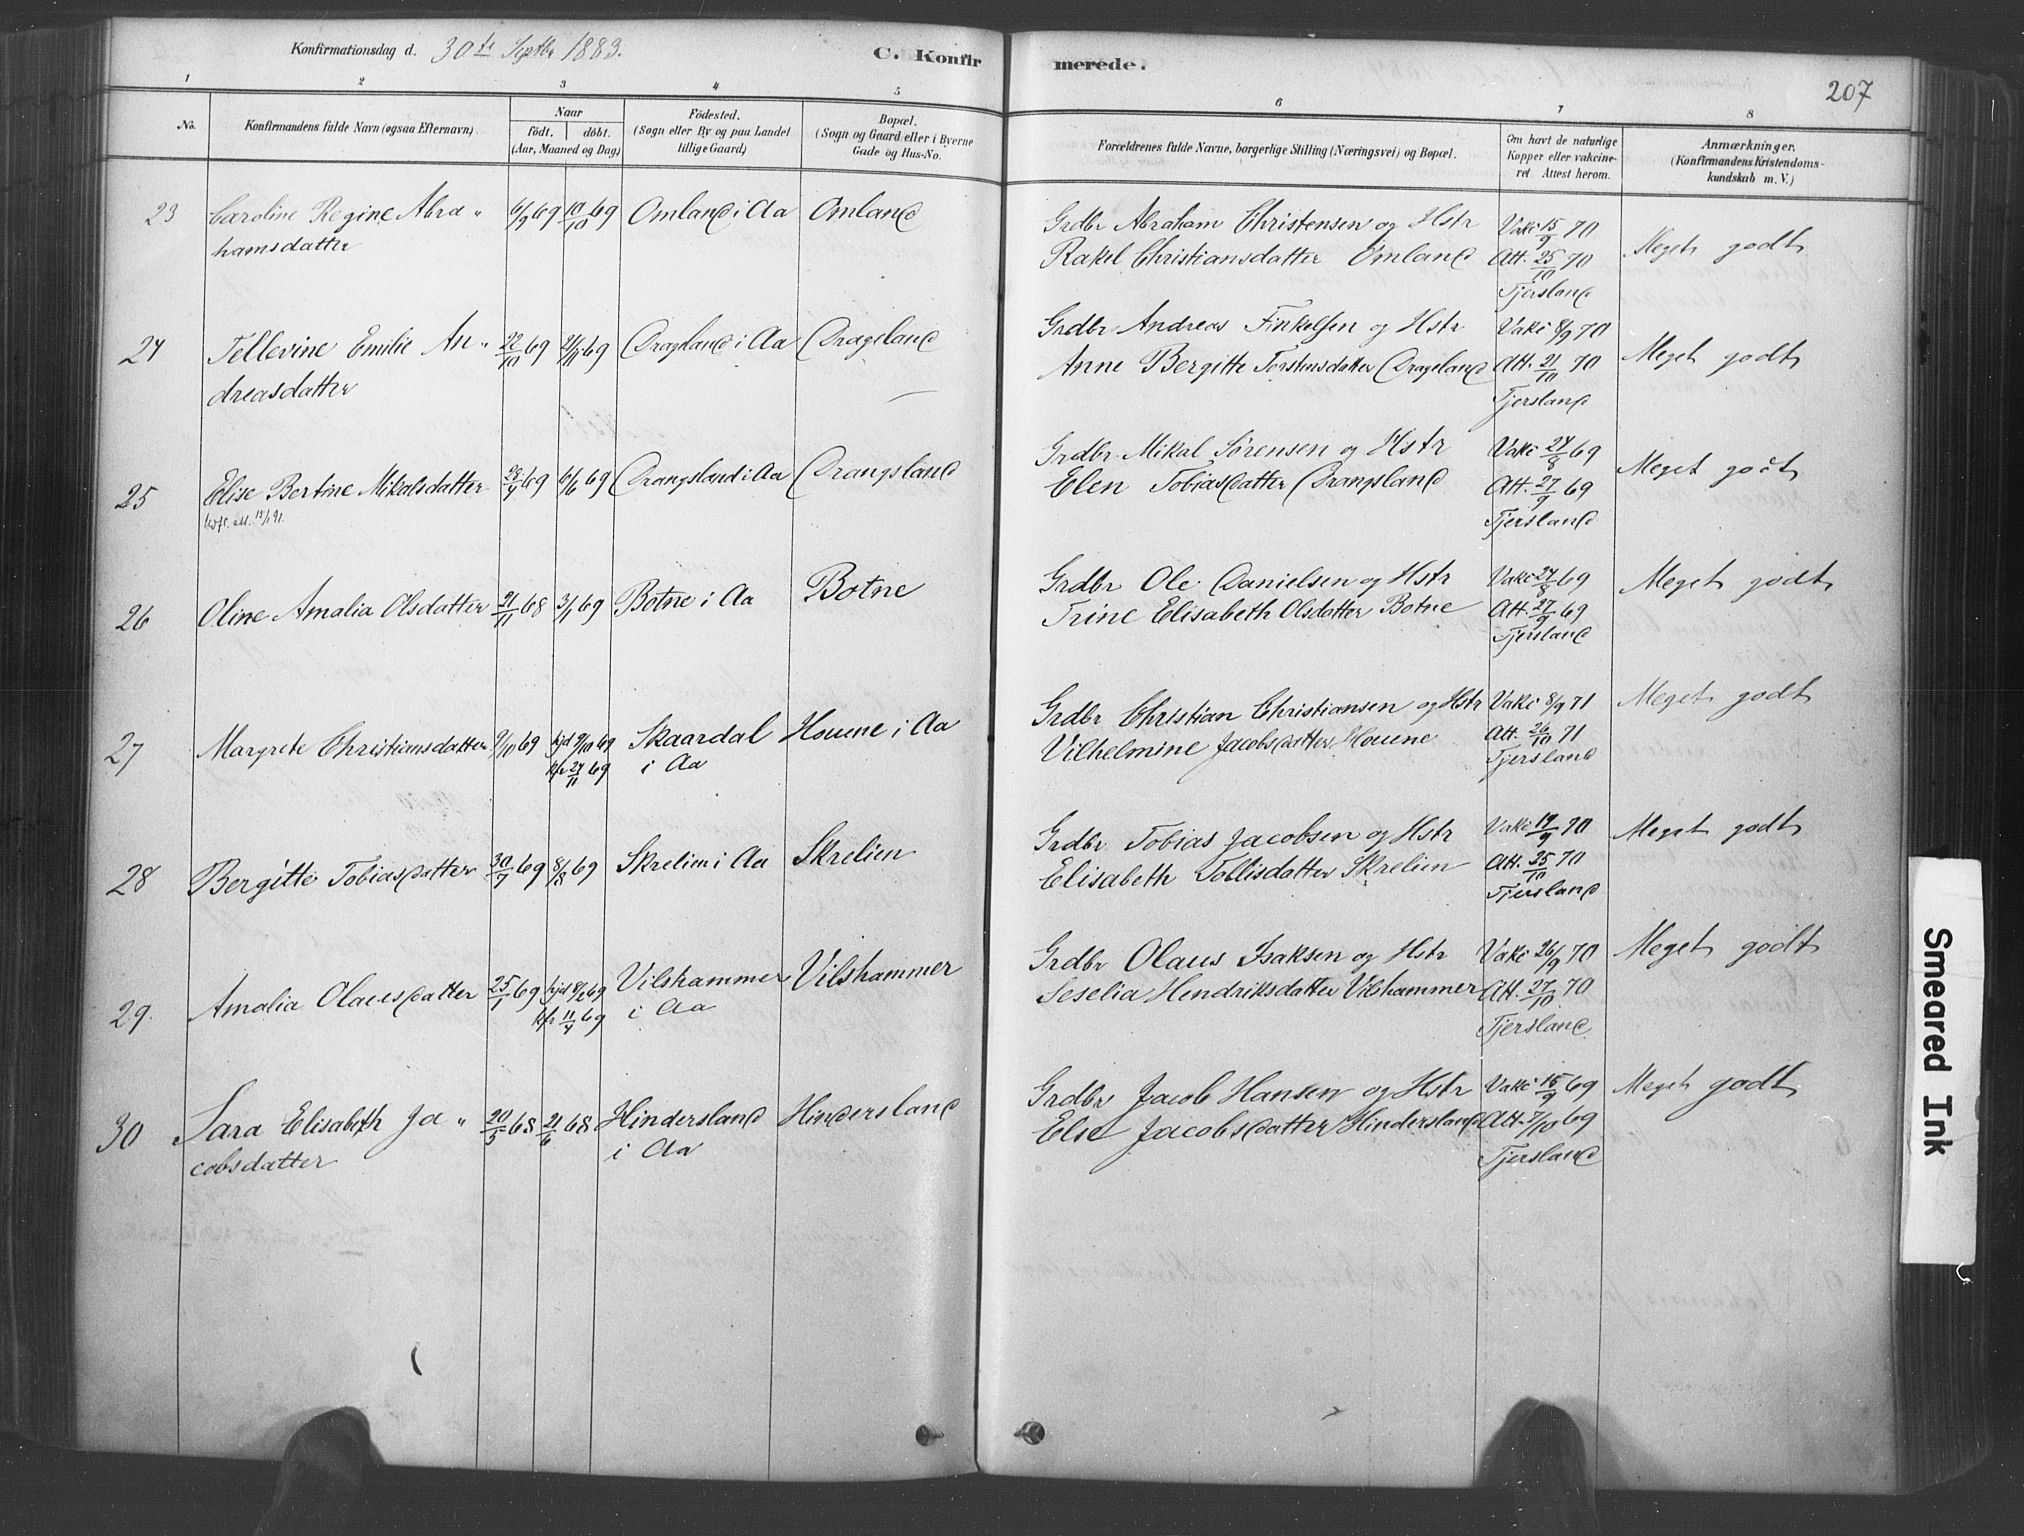 Konfirmationsdag d. 30te Septbr 1883.
C. Konfirmerede.
207
1 2 3 4 5 6 7 8
No.
Konfirmandens fulde Navn (ogsaa Efternavn).
Naar
födt. döbt.
(Aar, Maaned og Dag)
Födested.
(Sogn eller By og paa Landet
tillige Gaard)
Bopæl.
(Sogn og Gaard eller i Byerne
Gade og Hus-No.
Forældrenes fulde Navne, borgerlige Stilling (Næringsvei) og Bopæl.
Om havt de naturlige
Kopper eller vakcine-
ret. Attest herom.
Anmærkninger.
(Konfirmandens Kristendoms-
kundskab m. V.)
23 Caroline Regine Abra- 6/9 69 10/10 69 Omland i Aa Omland Grdbr Abraham Christensen og Hstr Vakc 15/9 70 Meget godt
hamsdatter Rakel Christiansdatter Omland Att. 25/10 70
Tjersland
24 Tellevine Emilie An- 22/10 69 21/11 69 Drageland i Aa Drageland Grdbr Andreas Finkelsen og Hstr Vakc 8/9 70 Meget godt
dreasdatter Anne Bergitte Torstensdatter Drageland Att. 21/10 70
Tjersland
25 Elise Bertine Mikalsdatter 69 6/6 69 Drangsland i Aa Drangsland Grdbr. Mikal Sørensen og Hstr Vakc 24/8 69 Meget godt
Elen Tobiasdatter Drangsland Att. 27/9 69
Tjersland
26 Oline Amalia Olsdatter 21/11 68 3/1 69 Botne i Aa Botne Grdbr Ole Danielsen og Hstr Vakc 24/8 69 Meget godt
Trine Elisabeth Olsdatter Botne Att. 27/9 69
Tjersland
27 Margrete Christiansdatter 9/10 69 hjd 9/10 69 Skaardal Houene i Aa Grdbr Christian Christiansen og Hstr Vakc 8/9 71 Meget godt
kfr 24/11 69 i Aa Vilhelmine Jacobsdatter Houene Att. 26/10 71
Tjersland
28 Bergitte Tobiasdatter 30/7 69 8/8 69 Skrelien i Aa Skrelien Grdbr Tobias Jacobsen og Hstr Vakc 19/9 70 Meget godt
Elisabeth Tollisdatter Skrelien Att. 25/10 70
Tjersland
29. Amalia Olausdatter 25/1 69 hjd 8/2 69 Vilshammer Vilshammer Grdbr Olaus Isaksen og Hstr Vakc 26/9 70 Meget godt
kfr 11/4 69 i Aa Seselia Hendriksdatter Vilshammer Att. 27/10 70
Tjersland
30 Sara Elisabeth Ja- 20/5 68 21/6 68 Hindersland Hindersland Grdbr Jacob Hansen og Hstr Vakc 15/9 69 Meget godt
cobsdatter i Aa Else Jacobsdatter Hindersland Att. 7/10 69
Tjersland
Smeared Ink